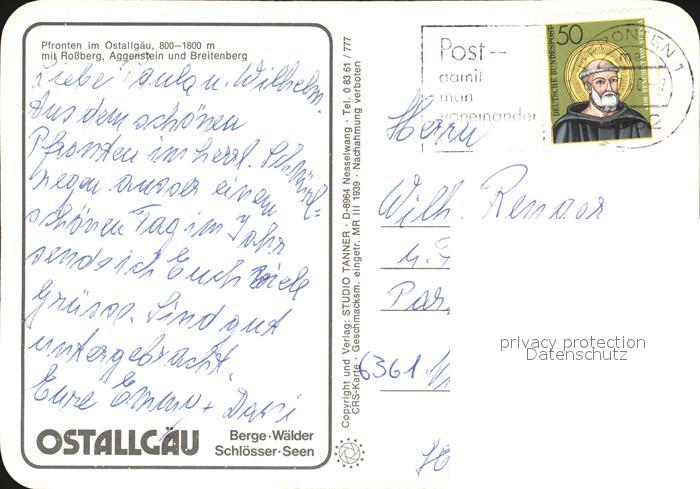 Pfronten im Ostallgäu, 800–1800 m
mit Roßberg, Aggenstein und Breitenberg
Liebe Paula u. Wilhelm.
Aus dem schönen
Pfronten im herrl.
regen ausser einen
schönen Tag im Jahr
sende ich Euch viele
Grüsse. Sind gut
untergebracht.
Eure
OSTALLGÄU
Berge·Wälder
Schlösser·Seen
Copyright und Verlag: STUDIO TANNER · D-8964 Nesselwang · Tel. 0 83 61 / 777
CRS-Karte · Geschmacksm. eingetr. MR III 1939 · Nachahmung verboten
Post--
damit
man
voneinander
PFRONTEN 1
50
DEUTSCHE BUNDESPOST
Herrn
Wilh.
Par
6361
privacy protection
Datenschutz